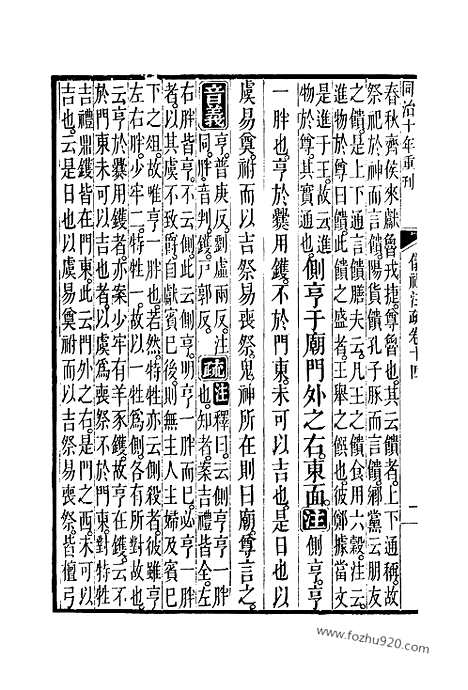 同治十年重刊
儀禮注疏卷十四
二
春秋齊侯來獻魯戎捷尊魯也其云饋者上下通稱故
祭祀於神而言饋陽貨饋孔子豚而言饋鄉黨云朋友
之饋是上下通言饋膳夫云凡王之饋食用六穀注云
進物於尊曰饋此饋之盛者王舉之饌也彼鄭據當文
是進于王故云進
物於尊其實通也側亨于廟門外之右東面注側亨亨
一胖也亨於爨用鑊不於門東未可以吉也是日也以
虞易奠祔而以吉祭易喪祭鬼神所在則曰廟尊言之
音義亨普庚反劉虛兩反注
同胖音判鑊戶郭反疏注釋曰云側亨亨一胖
也知者案吉禮皆全左
右胖皆亨不云側此云側亨明亨一胖而已必亨一胖
者以其虞不致爵自獻賓已後則無主人主婦及賓已
下之俎故唯亨一胖也若然特牲亦云側殺者彼雖亨
左右胖少牢二特牲一故以一牲爲側各有所對故也
云亨於爨用鑊者亦案少牢有羊豕鑊故亨在鑊云不
於門東未可以吉也者以虞爲喪祭不於門東對特牲
吉禮鼎鑊皆在門東此云門外之右是門之西未可以
吉也云是日也以虞易奠祔而以吉祭易喪祭皆檀弓
www.fozhu920.com